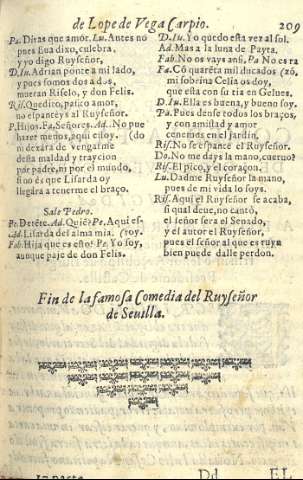 de Lope de Vega Carpio. 209
Pa. Divas que amor. Lu. Antes no
pues Eua dixo, culebra,
y yo digo Ruyseñor.
D. Iu. Adrian ponte a mi lado,
y pues somos dos a dos,
mueran Riselo, y don Felis.
Ris. Quedito, patico amor,
no espanteys al Ruyseñor.
P. Hijos. Fa. Señores. Ad. No pue
hazer menos, aqui estoy. (do
ni dexára de vengarme
desta maldad y traycion
por padre, ni por el mundo,
sino es que Lisarda oy
llegára a tenerme el braço.
Sale Pedro.
Pe. Detẽte. Ad. Quiẽ? Pe. Aqui es-
Ad. Lisarda del alma mia. (toy.
Fab. Hija que es esto? Pe. Yo soy,
aunque paje de don Felis.
D. Iu. Yo quedo esta vez al sol.
Ad. Mas a la luna de Payta.
Fab. No os vays ansi, Pa No es ra
Fa. Cõ quarẽta mil ducados (zõ,
mi sobrina Celia os doy,
que esta con su tia en Gelues.
D. Iu. Ella es buena, y bueno soy.
Pa. Pues dense todos los braços,
y con amistad y amor
cenemos en el jardin.
Ris. No se espante el Ruyseñor.
Do. No me days la mano, cuerno?
Ris. El pico, y el coraçon.
Lu. Dadme Ruyseñor la mano,
pues de mi vida lo soys.
Ris. Aqui el Ruyseñor se acaba,
si qual deue, no cantó,
el señor sera el Senado,
y el autor el Ruyseñor,
pues el señor al que es ruyn
bien puede dalle perdon.
Fin de la famosa Comedia del Ruyseñor
de Seuilla.
Dd EL